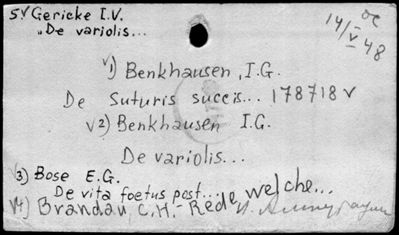 5v Gericke I.V.
"De variolis...
14/V 48
v1) Benkhausen, I.G.
De Suturis succis... 178718 v
v2) Benkhausen I.G.
De variolis...
v3) Bose E.G.
De vita foetus post...
v4) Brandau, C.H. - Rede, welche...